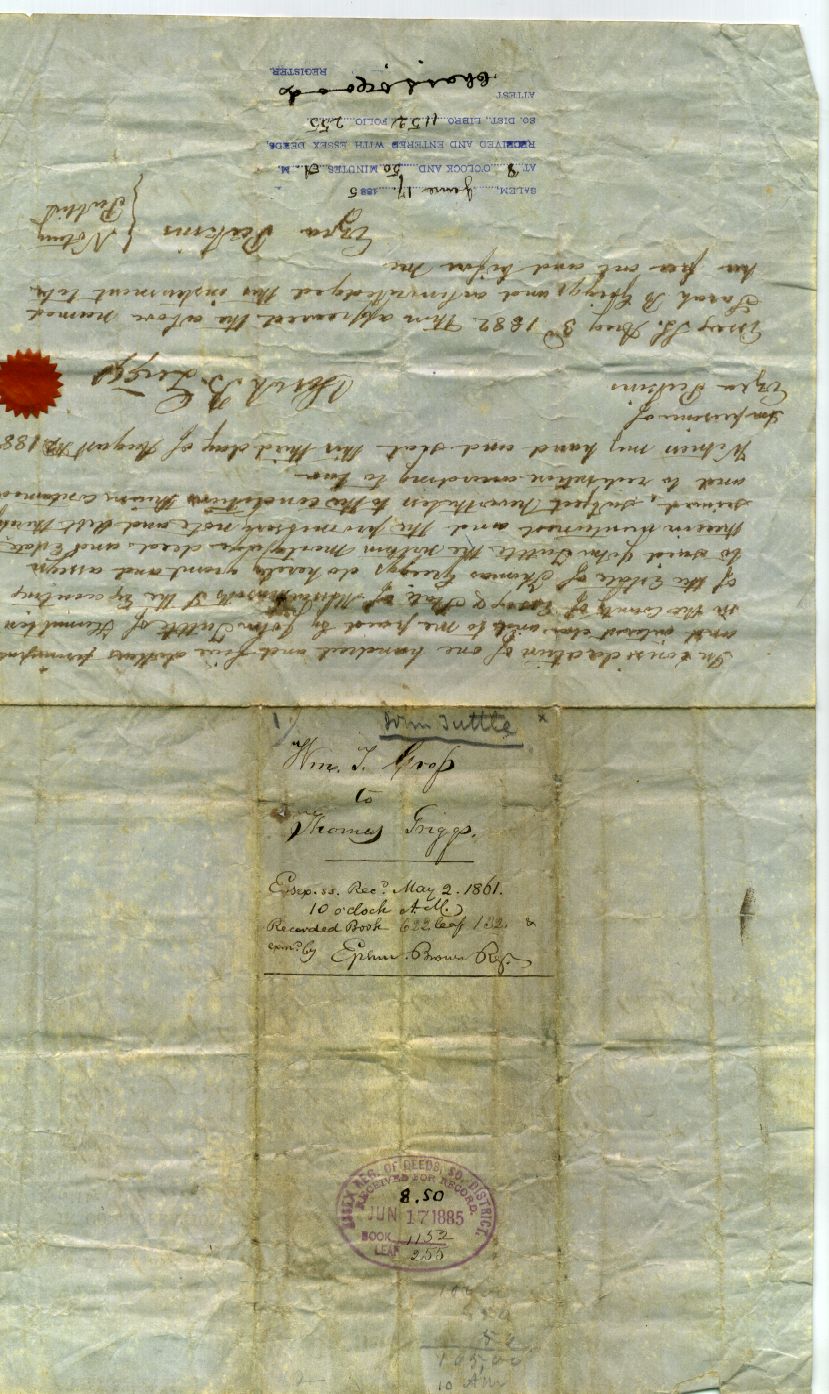 In consideration of one hundred and five dollars principal
and interest done and to me paid by John Tuttle of Hamilton
in the County of Essex & State of Massachusetts I the Executrix
of the Estate of Thomas Griggs do hereby grant and assign
to said John Tuttle the within Mortgage deed and Estate
therein mentioned and the promissory note and debt thereby
secured, subject nevertheless to the conditions therein contained
and to redemption according to law
Witness my hand and seal this third day of August AD 188
In presence of
Ezra Perkins
Sarah B. Griggs
Essex SS. Aug 3d 1882. Then appeared the above named
Sarah B Griggs and acknowledged this instrument to be
her free act and before me
Ezra Perkins } Notary
Public
SALEM, June 17, 1885
AT 8 O'CLOCK AND 50 MINUTES A. M.
RECEIVED AND ENTERED WITH ESSEX DEEDS,
SO. DIST., LIBRO, 1152 FOLIO 255
ATTEST
REGISTER.
John Tuttle x
Wm. T.
to
Thomas Griggs.
Essex. ss. Recd. May 2. 1861.
10 o'clock A.M.
Recorded Book 622. leaf 132. &
exmd. by Ephm. Brown Reg.
ESSEX REG. OF DEEDS, SO. DISTRICT.
RECEIVED FOR RECORD.
8.50
JUN 17 1885
BOOK 1152
LEAF 255
105,00
10 AM